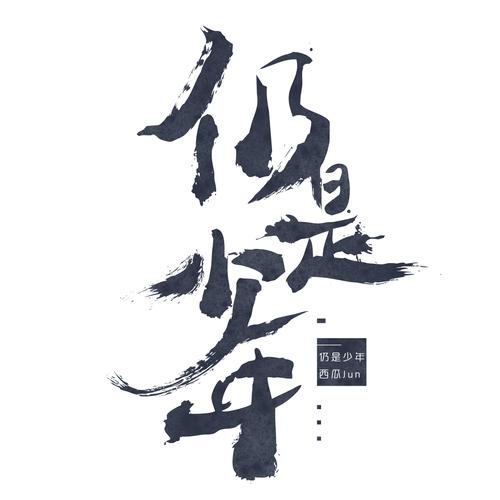 仍是少年
仍是少年
西瓜Jun